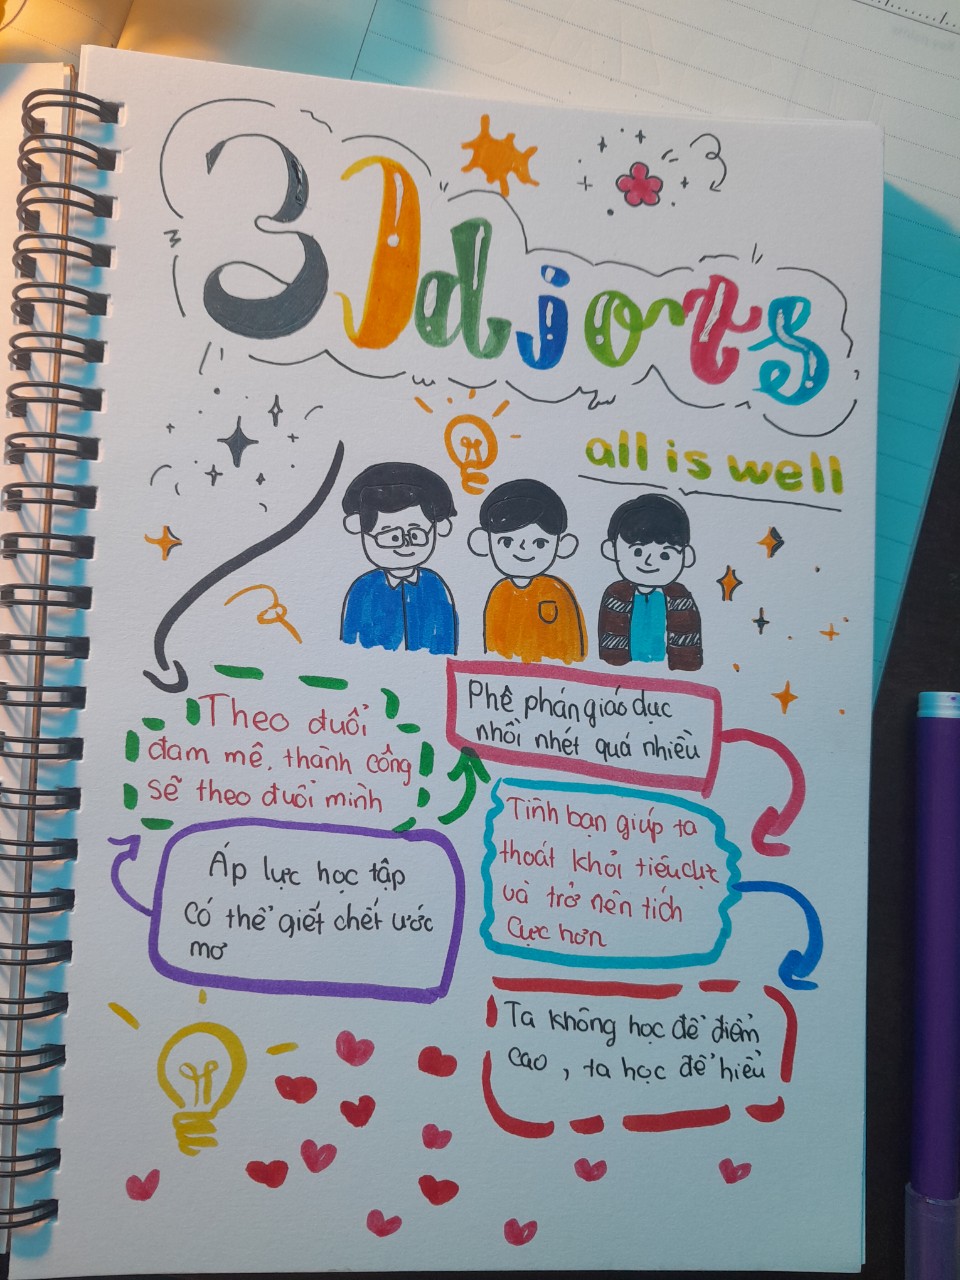 3 Idiots
all is well
Theo đuổi
đam mê, thành công
sẽ theo đuổi mình
Phê phán giáo dục
nhồi nhét quá nhiều
Áp lực học tập
Có thể giết chết ước
mơ
Tình bạn giúp ta
thoát khỏi tiêu cực
và trở nên tích
Cực hơn
Ta không học để điểm
cao, ta học để hiểu